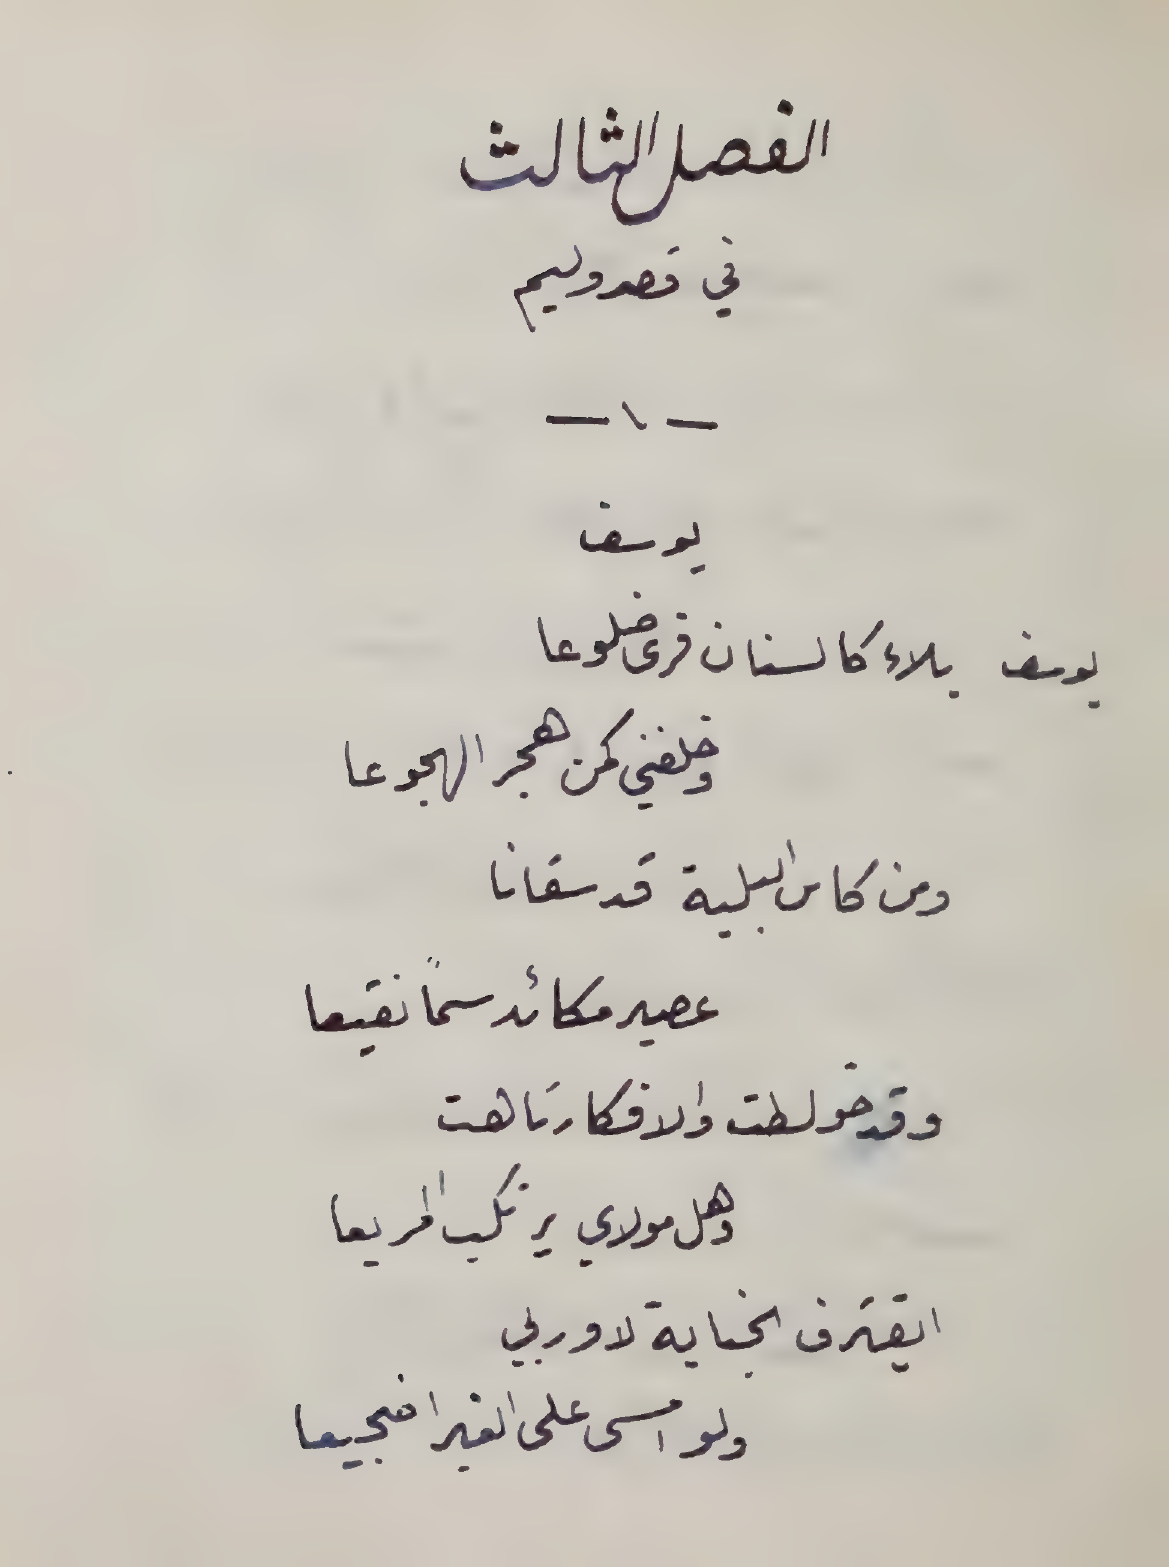 الفصل الثالث
في قصر وليم
— ١ —
يوسف
يوسف بلاء كالسنان فرى ضلوعا
وخلفني كمن هجر الهجوعا
ومن كاس البلية قد سقانا
عصير مكائد سمّاً نقيعا
وقد خولطت والافكار تاهت
وهل مولاي يرتكب المريعا
ايقترف الجناية لا وربي
ولو امسى على الغبرا ضجيعا